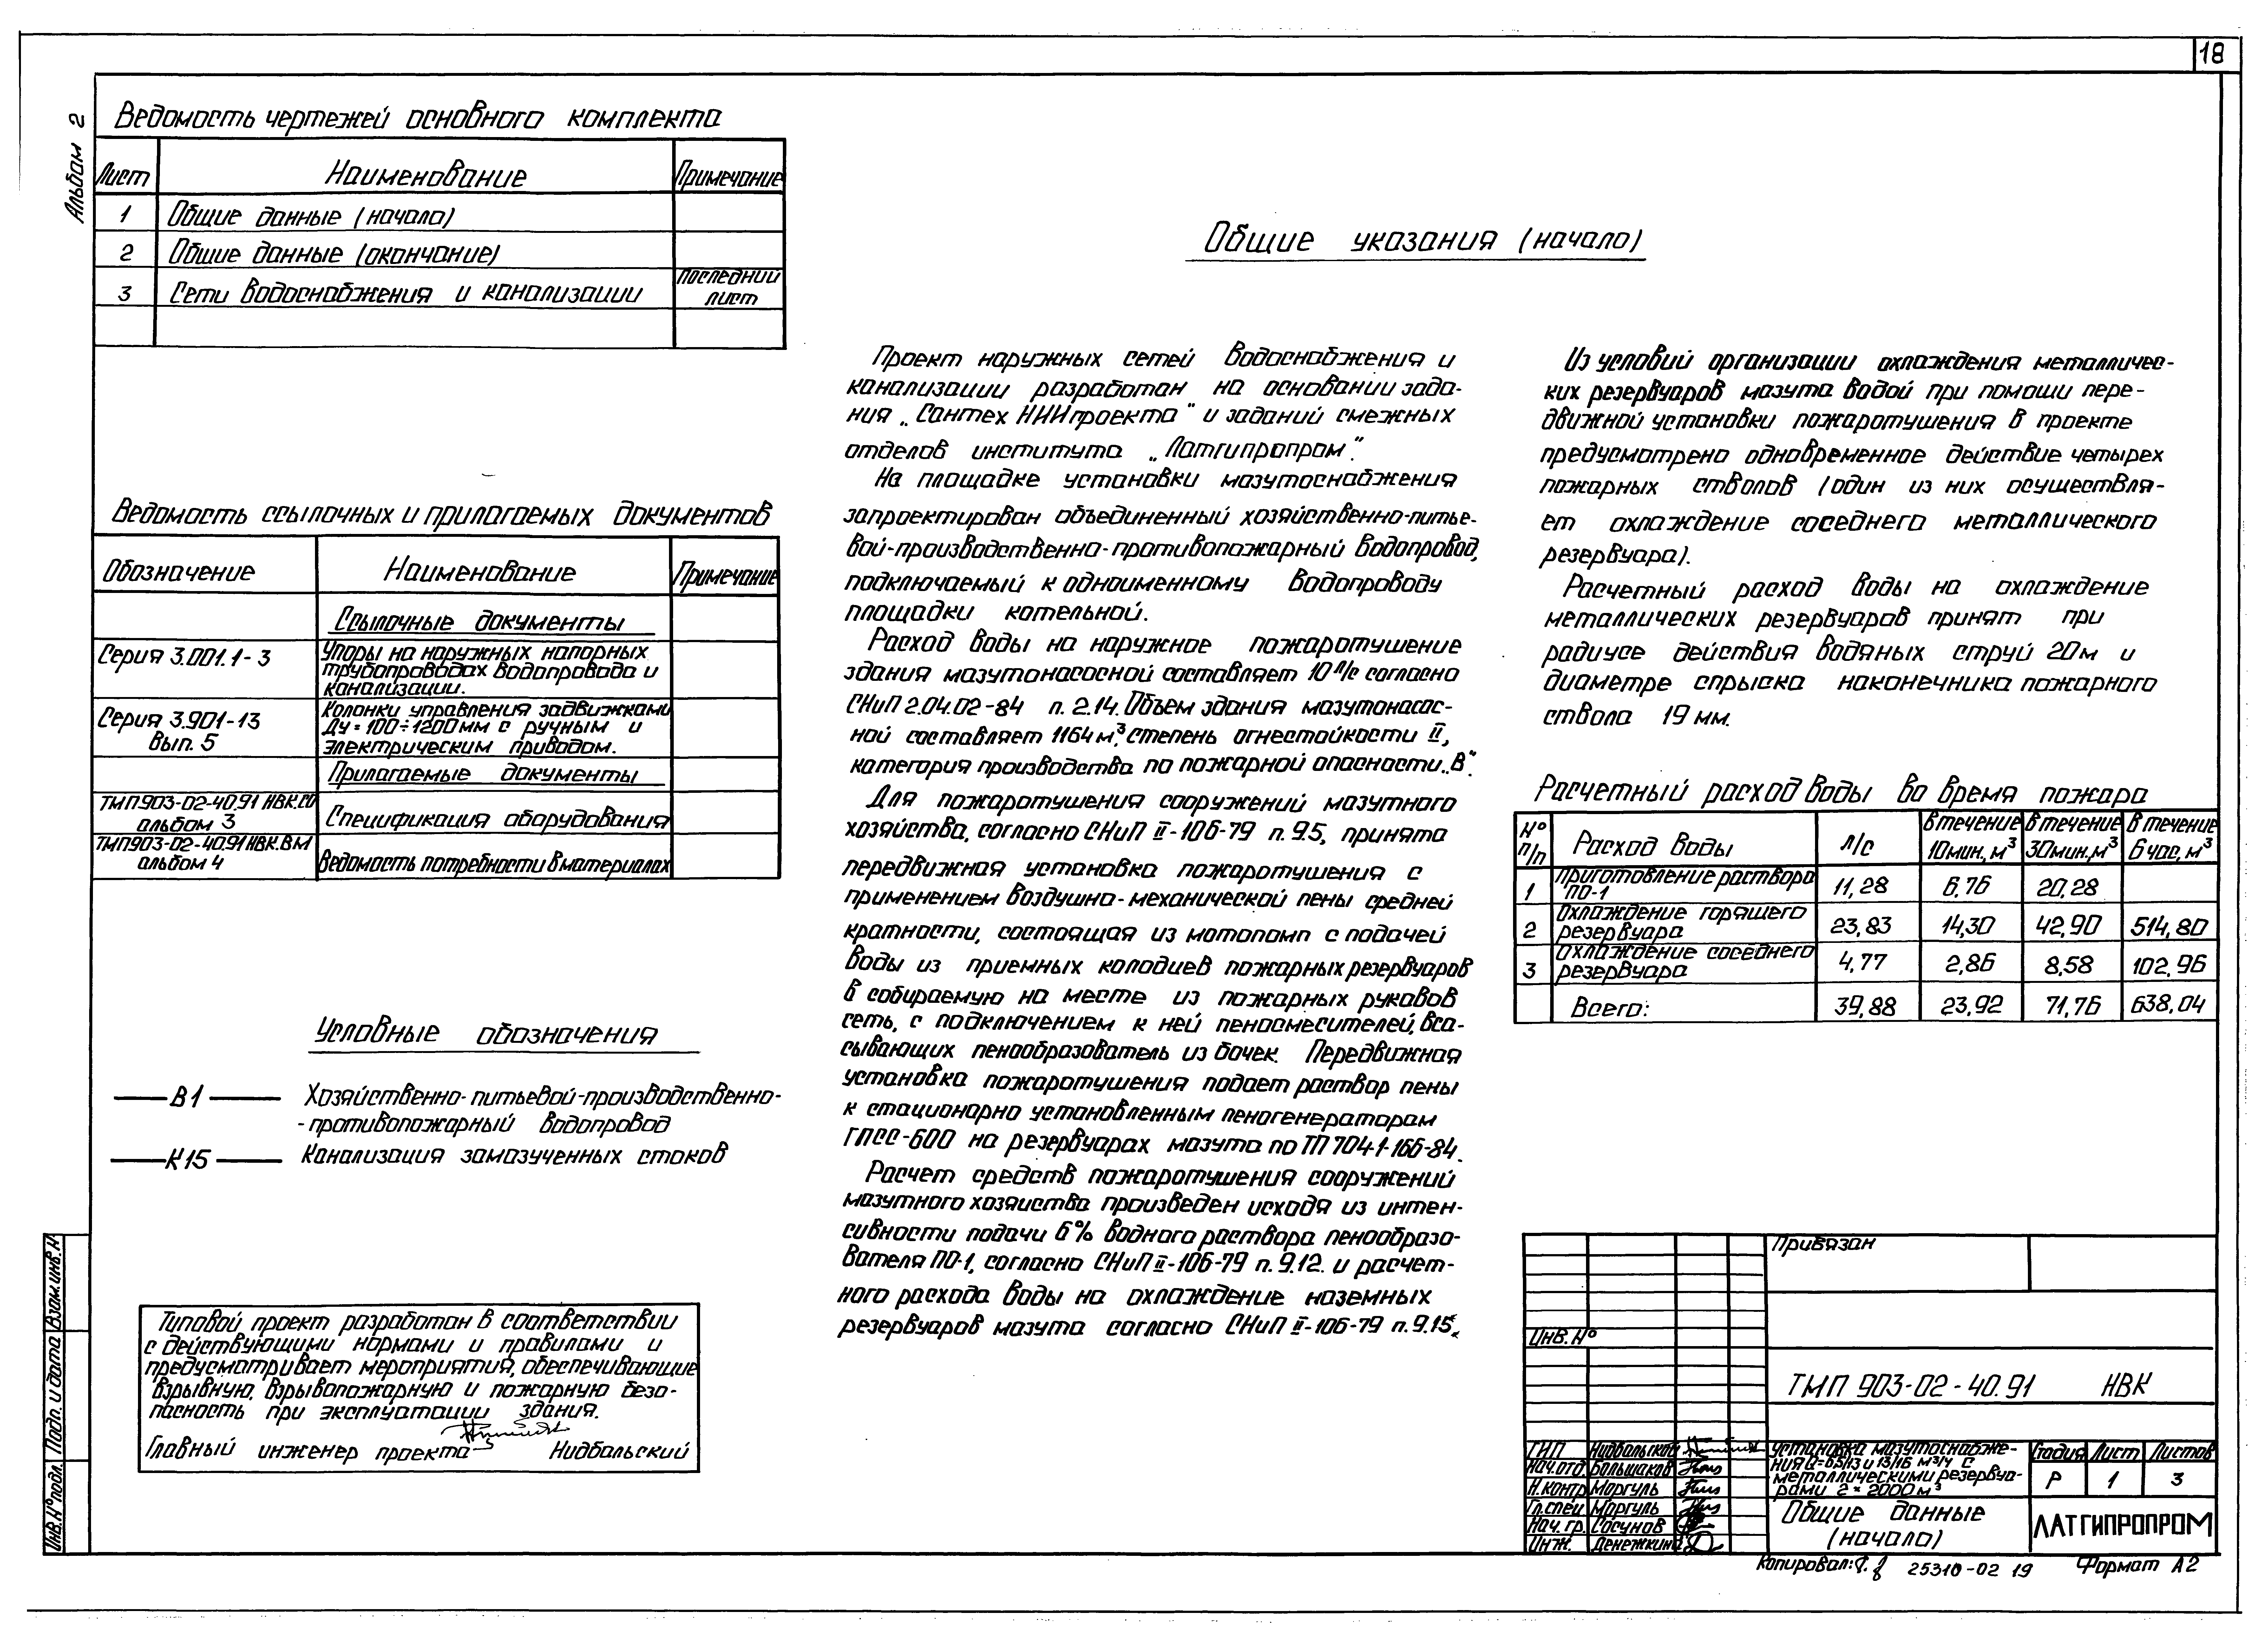 18
Альбом 2
Ведомость чертежей основного комплекта
Лист Наименование Примечание
1 Общие данные (начало)
2 Общие данные (окончание)
3 Сети водоснабжения и канализации последний лист
Ведомость ссылочных и прилагаемых документов
Обозначение Наименование Примечание
Ссылочные документы
Серия 3.001.1-3 Упоры на наружных напорных
трубопроводах водопровода и
канализации.
Серия 3.901-13 Колонки управления задвижками
Вып. 5 Ду=100÷1200мм с ручным и
электрическим приводом.
Прилагаемые документы
ТМП903-02-40.91 НВК.СО
альбом 3 Спецификация оборудования
ТМП903-02-40.91 НВК.ВМ
альбом 4 Ведомость потребности в материалах
Условные обозначения
В1 Хозяйственно-питьевой-производственно-
-противопожарный водопровод
К15 Канализация замазученных стоков
Типовой проект разработан в соответствии
с действующими нормами и правилами и
предусматривает мероприятия, обеспечивающие
взрывную, взрывопожарную и пожарную безо-
пасность при эксплуатации здания.
Главный инженер проекта Нидбальский
Общие указания (начало)
Проект наружных сетей водоснабжения и
канализации разработан на основании зада-
ния „СантехНИИпроекта" и заданий смежных
отделов института „Латгипропром".
На площадке установки мазутоснабжения
запроектирован объединенный хозяйственно-питье-
вой-производственно-противопожарный водопровод,
подключаемый к одноименному водопроводу
площадки котельной.
Расход воды на наружное пожаротушение
здания мазутонасосной составляет 10 л/с согласно
СНиП 2.04.02-84 п. 2.14. Объем здания мазутонасос-
ной составляет 1164 м³, степень огнестойкости II,
категория производства по пожарной опасности „В".
Для пожаротушения сооружений мазутного
хозяйства, согласно СНиП II-106-79 п. 9.5, принята
передвижная установка пожаротушения с
применением воздушно-механической пены средней
кратности, состоящая из мотопомп с подачей
воды из приемных колодцев пожарных резервуаров
в собираемую на месте из пожарных рукавов
сеть, с подключением к ней пеносмесителей, вса-
сывающих пенообразователь из бочек. Передвижная
установка пожаротушения подает раствор пены
к стационарно установленным пеногенераторам
ГПСС-600 на резервуарах мазута по ТП 704-1-166-84.
Расчет средств пожаротушения сооружений
мазутного хозяиства произведен исходя из интен-
сивности подачи 6% водного раствора пенообразо-
вателя ПО-1, согласно СНиП II-106-79 п. 9.12. и расчет-
ного расхода воды на охлаждение наземных
резервуаров мазута согласно СНиП II-106-79 п. 9.15.
Из условий организации охлаждения металличес-
ких резервуаров мазута водой при помощи пере-
движной установки пожаротушения в проекте
предусмотрено одновременное действие четырех
пожарных стволов (один из них осуществля-
ет охлаждение соседнего металлического
резервуара).
Расчетный расход воды на охлаждение
металлических резервуаров принят при
радиусе действия водяных струй 20м и
диаметре спрыска наконечника пожарного
ствола 19 мм.
Расчетный расход воды во время пожара
№ п/п Расход воды л/с В течение 10мин, м³ В течение 30мин, м³ В течение 6 час, м³
1 Приготовление раствора ПО-1 11,28 6,76 20,28
2 Охлаждение горящего резервуара 23,83 14,30 42,90 514,80
3 Охлаждение соседнего резервуара 4,77 2,86 8,58 102,96
Всего: 39,88 23,92 71,76 638,04
Привязан
Инв. №
ТМП 903-02-40.91 НВК
ГИП Нидбальский
Нач.отд. Большаков
Н.контр Моргуль
Гл.спец Моргуль
Нач. гр. Сосунов
Инж. Денежкина
Установка мазутоснабже-
ния Q=6,5/13 и 13/16 м³/ч с
металлическими резервуа-
рами 2×2000м³
Стадия Лист Листов
Р 1 3
Общие данные
(начало)
ЛАТГИПРОПРОМ
Инв.№ подл. Подп. и дата Взам.инв.Н
Копировал: 25310-02 19 Формат А2